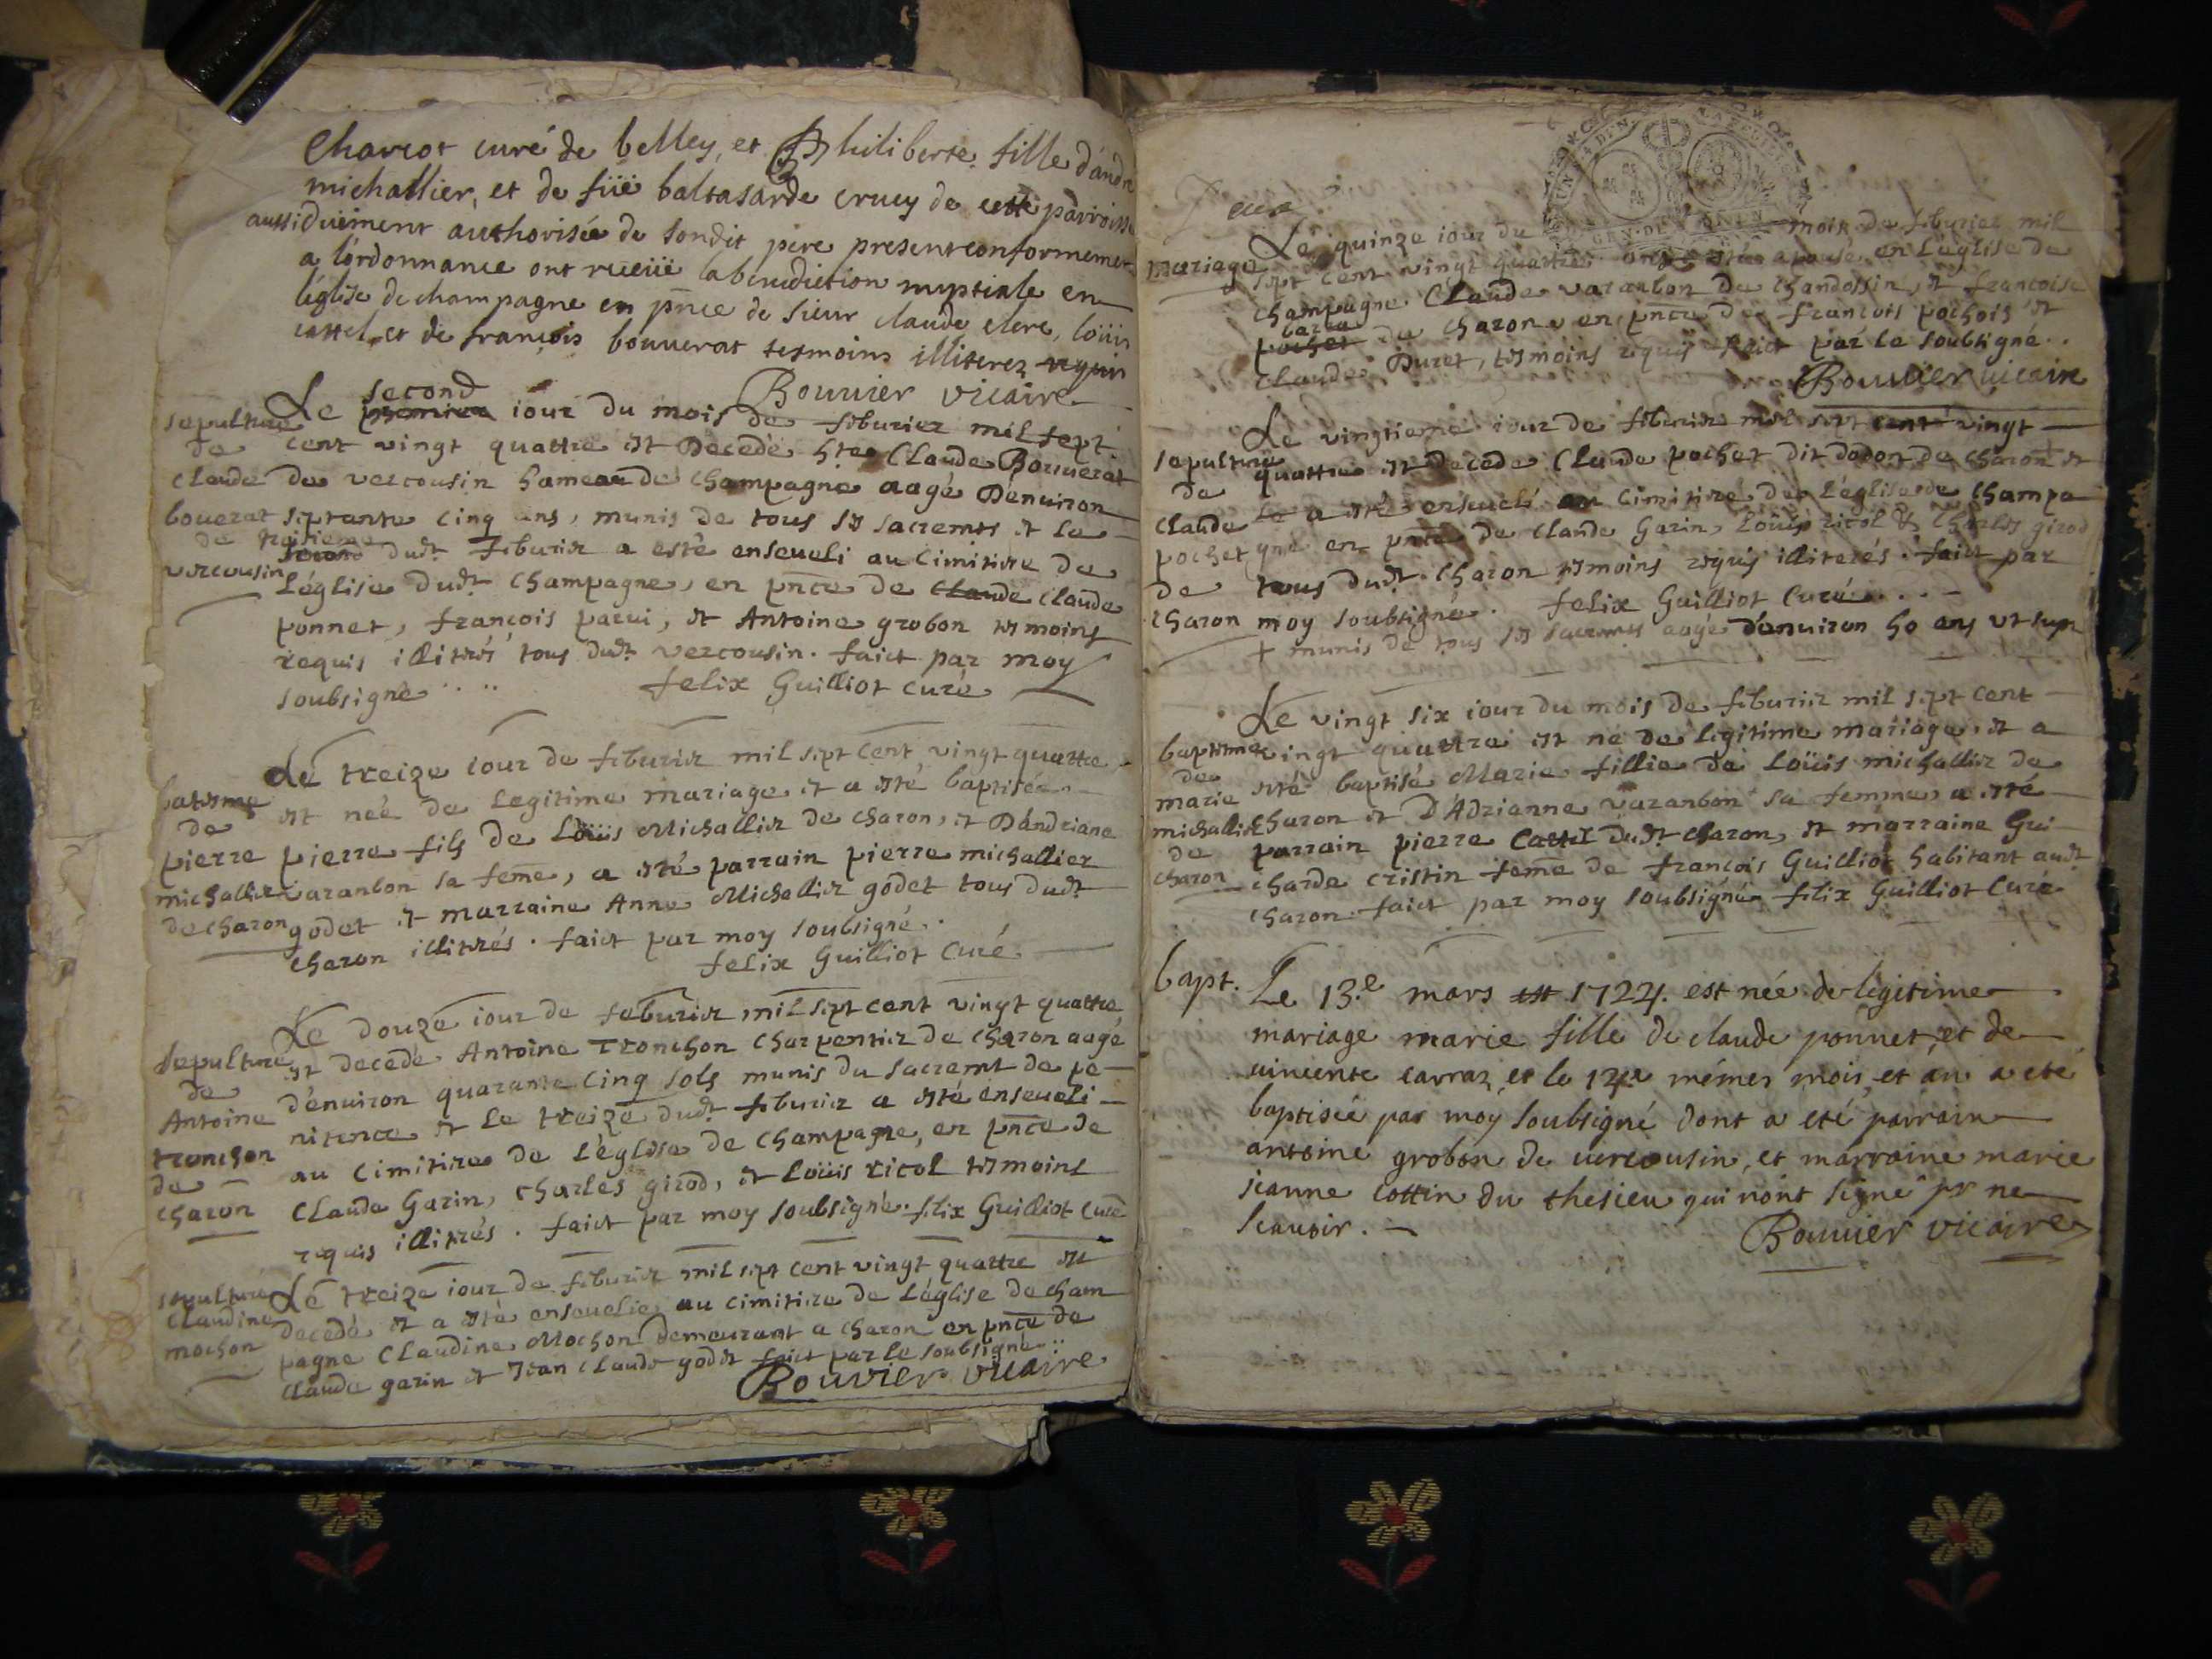 Charcot curé de belley, et Philiberte fille d'andré
michallier, et de füe baltasarde crucy de cette parroisse
aussi düement authorisée de sondit pere present conformement
a l'ordonnance ont receüe la benediction nuptiale en
l'église de champagne en pnce de sieur claude clerc, loüis
cattel, et de françois bouuerat tesmoins illiterez requis
Bouvier vicaire
second
Le premier iour du mois de feburier mil sept
sepulture
de cent vingt quattre est Decedé hte Claude Bouuerat
claude de vercousin hameau de Champagne aagé D'enuiron
bouerat septante cinq ans, munis de tous ses sacremts et le
de troisieme
second dudt feburier a esté enseueli au Cimitire de
vercousin L'église dudt Champagne, en pnce de Claude Claude
ponnet, françois parui, et Antoine grobon tesmoins
requis illitérés tous dudt vercousin. faict par moy
soubsigné.... felix Guilliot Curé
Le treize iour de feburier mil sept Cent vingt quattre
batesme est neé de Legitime mariage et a esté baptisée
de
pierre pierre fils de Loüis Michallier de charon, et D'andriane
michallier varanbon sa feme, a esté parrain pierre michallier
de charon godet et marraine Anne Michallier godet tous dudt
charon illitérés. faict par moy soubsigné.
felix Guilliot Curé.
Le douze iour de feburier mil sept cent vingt quattre
sepulture est decedé Antoine Tronchon Charpentier de Charon aagé
de
Antoine d'enuiron quarante cinq sols munis du sacremt de pe-
tronchon nitence et Le treize dudt feburier a esté enseueli
de au Cimitire de L'église de Champagne, en pnce de
charon Claude Garin, Charles girod, et Loüis ricol tesmoins
requis illitérés. faict par moy soubsigné. felix Guilliot Curé
sepulture Le treize iour de feburier mil sept cent vingt quattre est
Claudine decedé et a esté enseuelie au cimitire de L'église de cham
mochon pagne Claudine Mochon demeurant a charon en pnce de
claude garin et Jean Claude godet faict par le soubsigné..
Bouvier vicaire
GEN. DE
Le quinze iour du mois de feburier mil
mariage sept Cent vingt quattre ont esté epousé en L'église de
Champagne Claude varanbon de Chandossin, et francoise
pochet de charon en pnce de francois pochois et
Claude Duret, tesmoins requis faict par le soubsigné..
Bouvier vicaire
Le vingtieme iour de feburier mil sept cent vingt
sepulture quattre est decedé Claude pochet dit dodon de Charon + et
de
Claude le a esté enseueli au Cimitire de L'église de Champa
pochet gne en pnce de Claude Garin, Loüis ricol & Charles girod
de tous dudt. Charon tesmoins requis illiterés. faict par
charon moy soubsigné. felix Guilliot Curé...
+ munis de tous ses sacremts aagé d'enuiron 50 ens ut supr
Le vingt six iour du mois de feburier mil sept cent
baptesme vingt quattre est né de Légitime mariage et a
de
marie esté baptisé Marie fillie de Loüis michallier de
michallier charon et D'Adrianne varanbon sa femme a esté
de parrain pierre Cattel dudt charon, et marraine Gui-
charon charde cristin feme de francois Guilliot habitant audt
charon. faict par moy soubsigné felix Guilliot Curé
bapt. Le 13.e mars est 1724. est née de légitime
mariage marie fille de claude ponnet, et de
uincente carraz, et le 14e mémes mois, et an a eté
baptisée par moy soubsigné dont a eté parrain
antoine grobon de uercousin, et marraine marie
jeanne cottin du thesieu qui n'ont signé pr ne
scauoir.
Bouuier vicaire